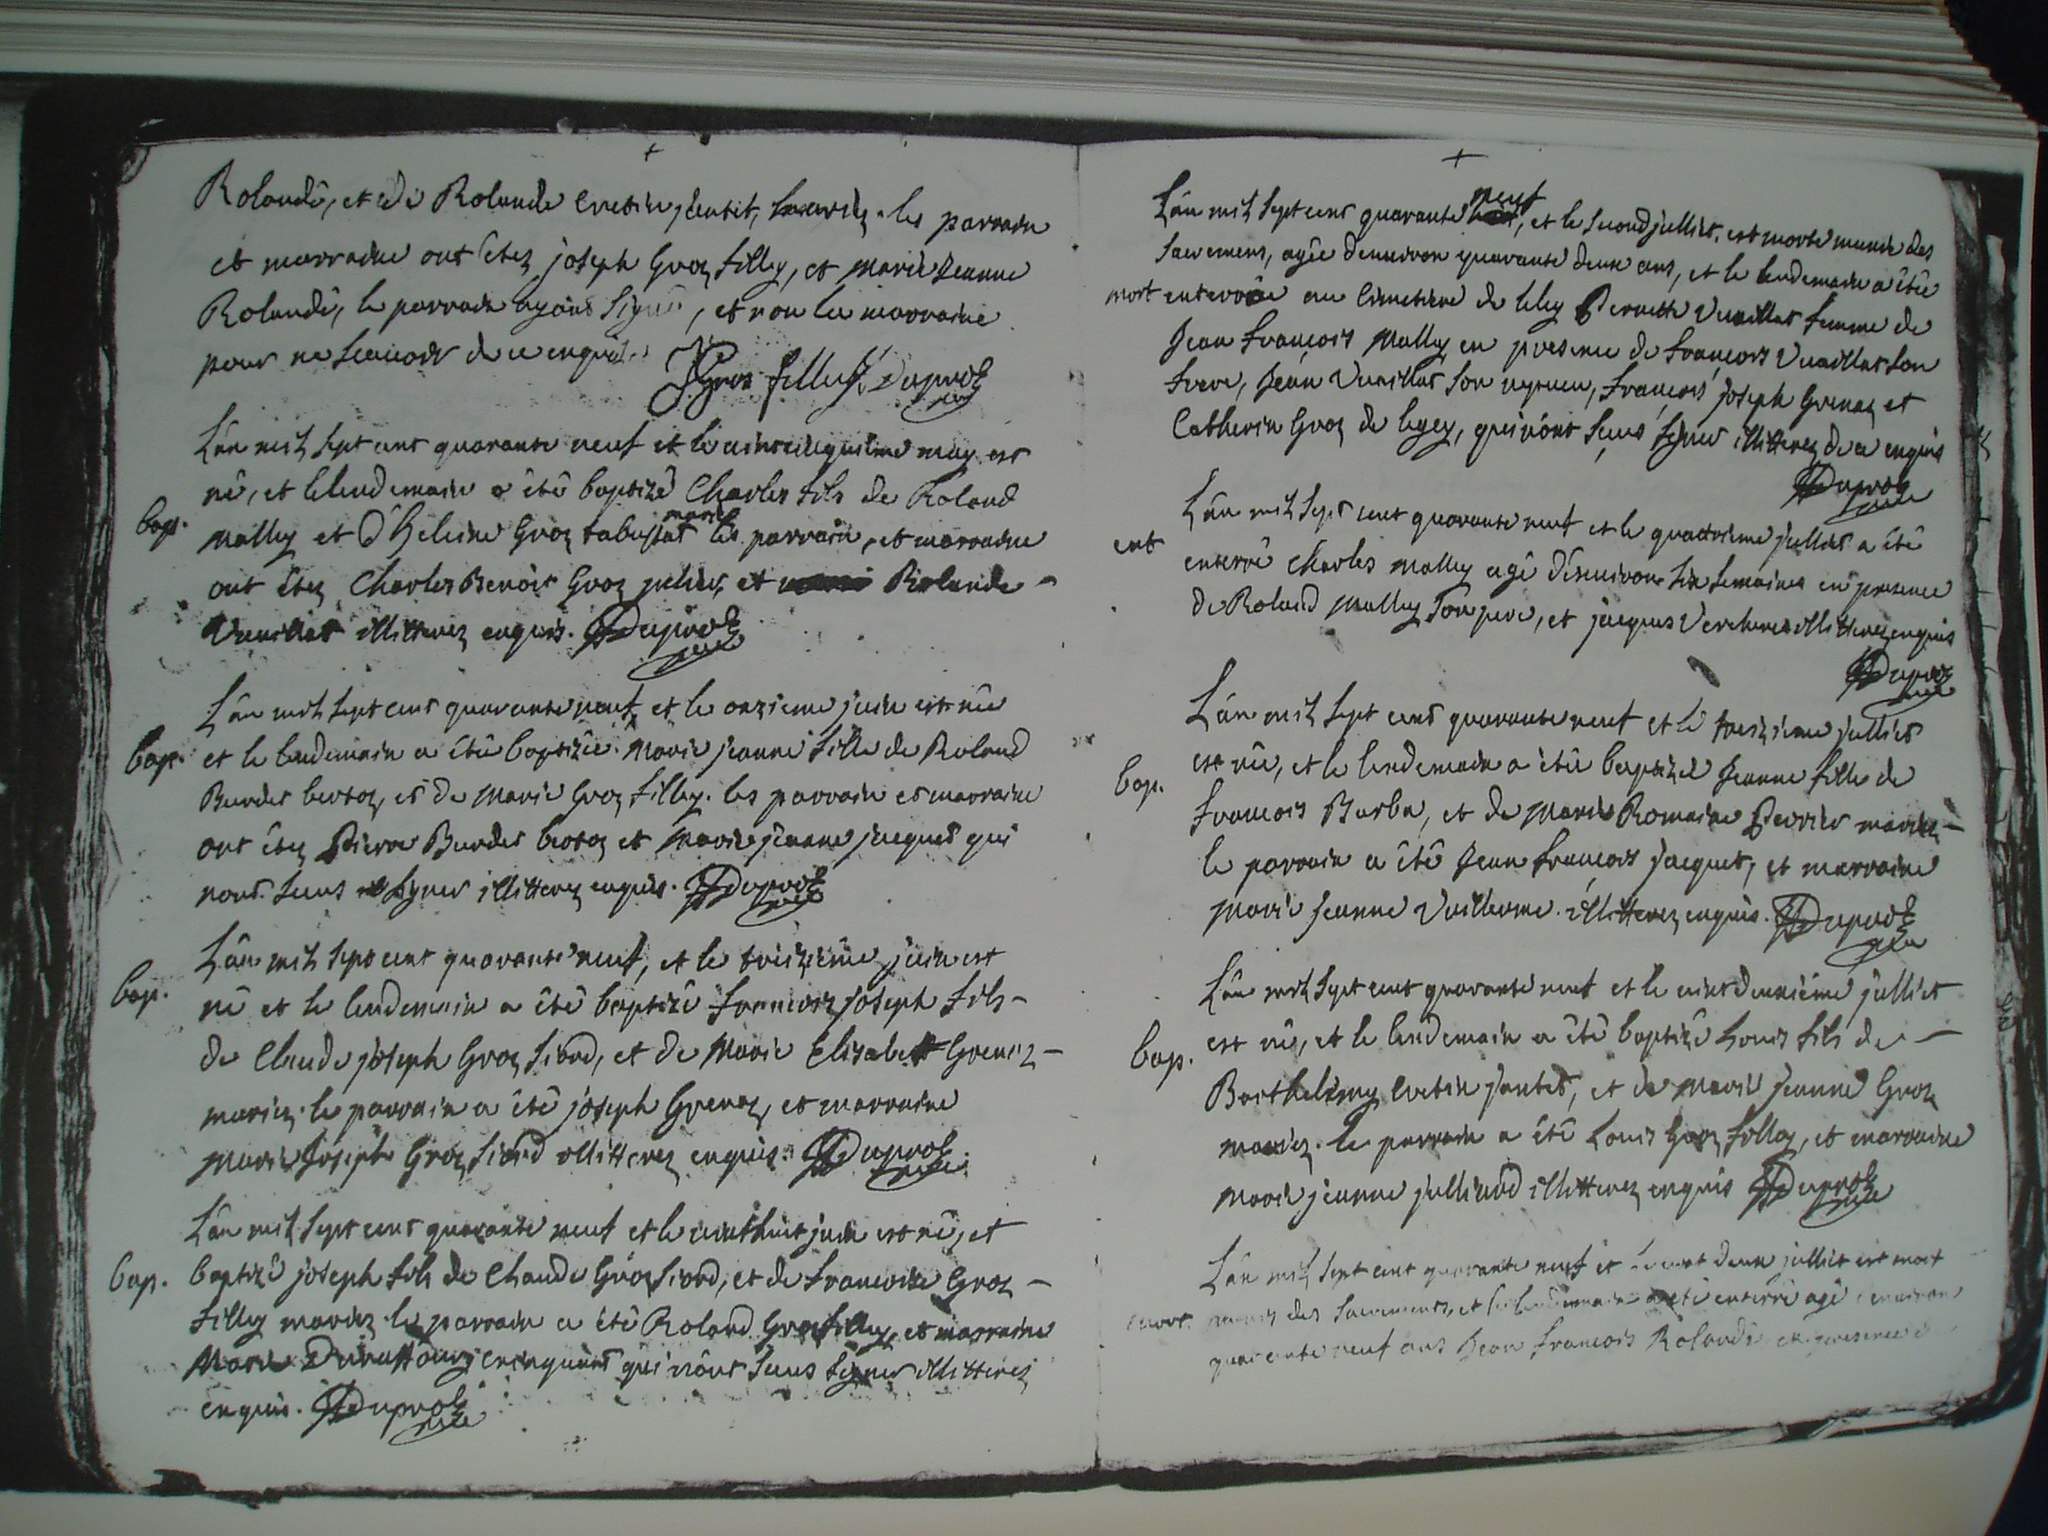 Rolandé, et de Rolande Cretin jantet, mariez. les parrain
et marraine ont êtez joseph Groz filley, et marie Jeanne
Rolandé, le parrain ayant signé, et non la marraine
pour ne scavoir de ce enquis
JGroz filley Duproz
L'an mil sept cent quarante neuf et le vintcinquième may est
bap. né, et lelendemain a êté baptizé Charles fils de Roland
malley et d'Heleine Groz tabustat mariez les parrain, et marraine
ont êtez Charles Benoit Groz et Rolande
Vuaillat illitterez enquis. Duproz
L'an mil sept cent quarante neuf, et le onzieme juin est née
bap. et le lendemain a êté baptizée marie jeanne fille de Roland
Burdet bertoz, et de marie Groz filley. les parrain et marraine
ont êtez Pierre Burdet bertoz et marie jeanne jacquet qui
nont sceus signer illitterez enquis. Duproz
L'an mil sept cent quarante neuf, et le treizième juin est
bap. né et le lendemain a êté baptizé francois joseph fils
de Claude joseph Groz siord, et de marie Elizabett Grenoz
mariez. le parrain a êté joseph Grenoz, et marraine
marie Josephe Groz siord illitterez enquis. Duproz
L'an mil sept cent quarante neuf et le vinthuit juin est né, et
bap. baptizé joseph fils de Claude Groz siord, et de francoise Groz
filley mariez. le parrain a été Roland Groz filley, et marraine
Marie qui n'ont sceus signer illitterez
enquis. Duproz
L'an mil sept cent quarante neuf, et le second julliet, est morte munie des
sacremens, agée denviron quarante deux ans, et le lendemain a êtée
mort enterrée au Cimetiere de Pernette Vuaillat femme de
Jean francois Malley en presence de francois Vuaillat son
frere, Jean Vuaillat son nepveu, francois joseph Grenoz et
Catherin Groz de qui n'ont sceus signer illitterez de ce enquis
Duproz
L'an mil sept cent quarante neuf et le quattrieme julliet a êté
ent enterré Charles malley agé d'environ six semaines en presence
de Roland malley son pere, et jacques illitterez enquis
Duproz
L'an mil sept cent quarante neuf et le treizieme julliet
bap. est née, et le lendemain a êté baptizée Jeanne fille de
francois Barbe, et de marie Romaine Perrier mariez
le parrain a êté Jean francois jacquet, et marraine
marie Jeanne Vuillerme. illitterez enquis. Duproz
L'an mil sept cent quarante neuf et le vintdeuxième julliet
bap. est né, et le lendemain a êté baptizé Louis fils de
Barthelemy Cretin jantet, et de marie jeanne Groz
mariez. le parrain a êté Louis Groz filley, et marraine
marie jeanne julliard illitterez enquis Duproz
L'an mil sept cent quarante neuf et le vint deux julliet est mort
mort munis des sacrements, et le lendemain a été enterré agé environ
quarante neuf ans Jean francois Rolandé en presence d